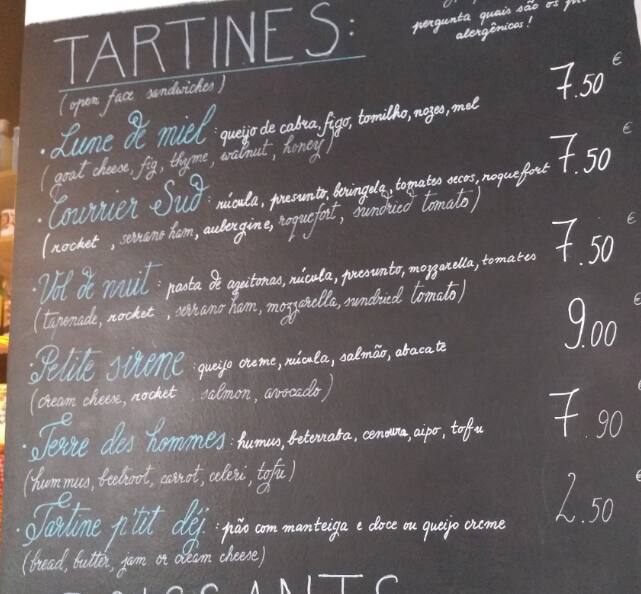 TARTINES:
pergunta quais são os
alergênicos!
(open face sandwiches)
• Lune de miel : queijo de cabra, figo, tomilho, nozes, mel 7.50 €
(goat cheese, fig, thyme, walnut, honey)
• Courrier Sud : rúcula, presunto, beringela, tomates secos, roquefort 7.50 €
(rocket, serrano ham, aubergine, roquefort, sundried tomato)
• Vol de nuit : pasta de azeitonas, rúcula, presunto, mozzarella, tomates 7.50 €
(tapenade, rocket, serrano ham, mozzarella, sundried tomato)
• Petite sirene : queijo creme, rúcula, salmão, abacate 9.00 €
(cream cheese, rocket salmon, avocado)
• Terre des hommes : humus, beterraba, cenoura, aipo, tofu 7.90 €
(hummus, beetroot, carrot, celeri, tofu)
• Tartine p'tit déj : pão com manteiga e doce ou queijo creme 2.50 €
(bread, butter, jam or cream cheese)